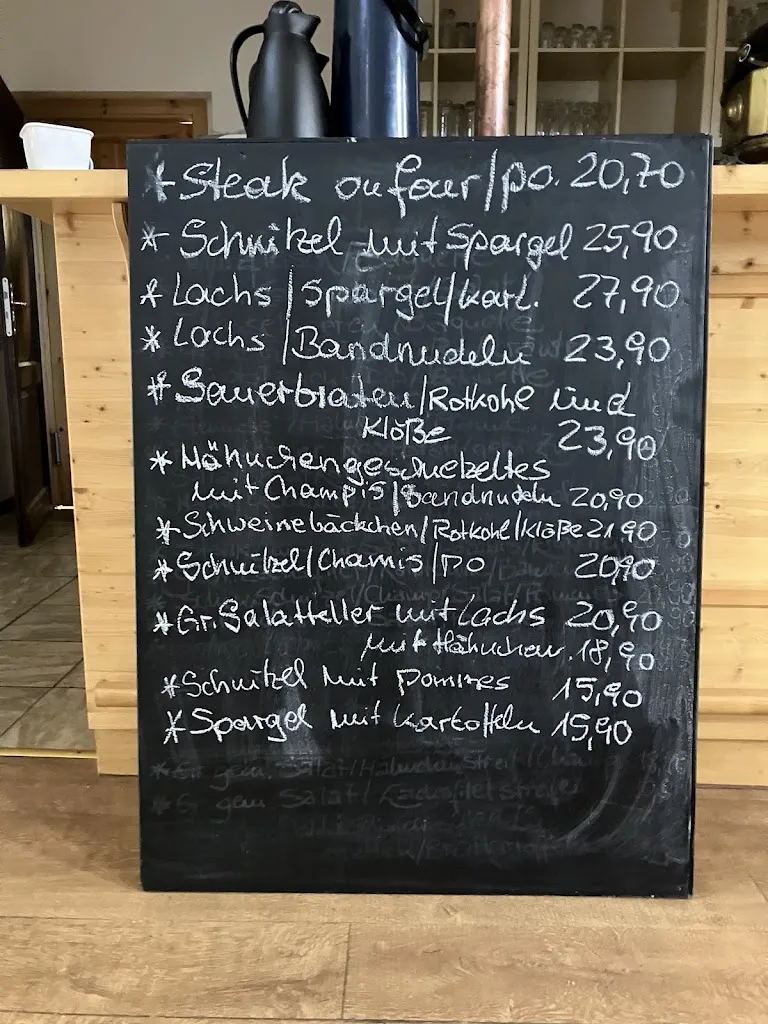 * Steak au four/po. 20,70
* Schnitzel mit Spargel 25,90
* Lachs/Spargel/kart. 27,90
* Lachs/Bandnudeln 23,90
* Sauerbraten/Rotkohl und
Klöße 23,90
* Hähnchengeschnetzeltes
mit Champis/Bandnudeln 20,90
* Schweinebäckchen/Rotkohl/Klöße 21,90
* Schnitzel/Chamis/po 20,90
* Gr. Salatteller mit Lachs 20,90
mit Hähnchen. 18,90
* Schnitzel mit pommes 15,90
* Spargel mit Kartoffeln 15,90